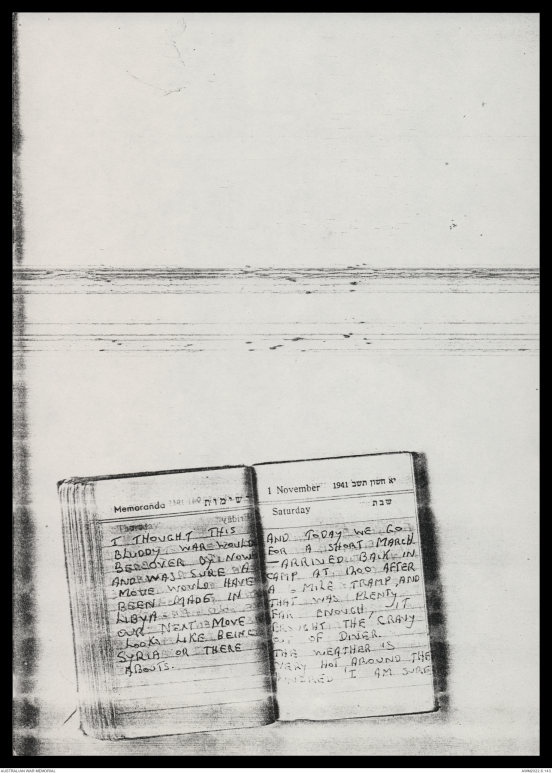 Memoranda רשימות
I THOUGHT THIS
BLUDDY WAR WOULD
BEE OVER BY NOW
AND WAS SURE A
MOVE WOULD HAVE
BEEN MADE IN
LIBYA
OUR NEXT MOVE
LOOKS LIKE BEING
SYRIA OR THERE
ABOUTS.
1 November 1941 יא חשון תשב
Saturday שבת
AND TODAY WE GO
FOR A SHORT MARCH
—ARRIVED BACK IN
CAMP AT 1200 AFTER
A MILE TRAMP, AND
THAT WAS PLENTY
FAR ENOUGH, IT
BROUGHT THE GRAVY
OUT OF DINER.
THE WEATHER IS
VERY HOT AROUND THE
I AM SURE
AUSTRALIAN WAR MEMORIAL